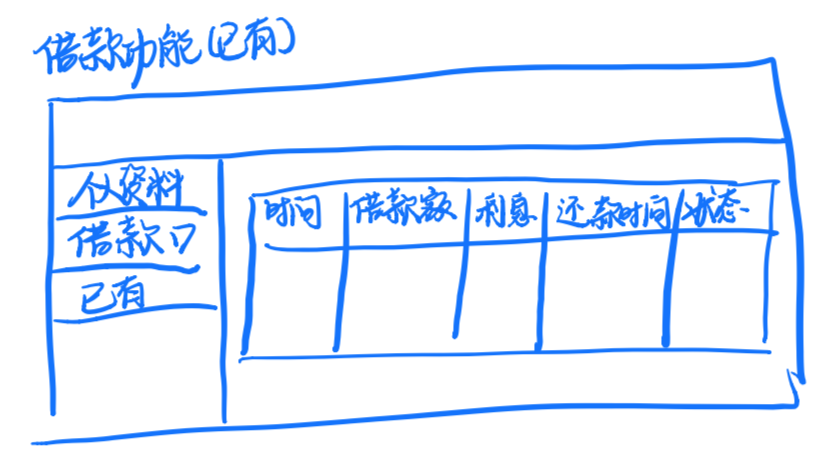 借款功能(已有)
个人资料
借款
已有
时间 借款额 利息 还款时间 状态